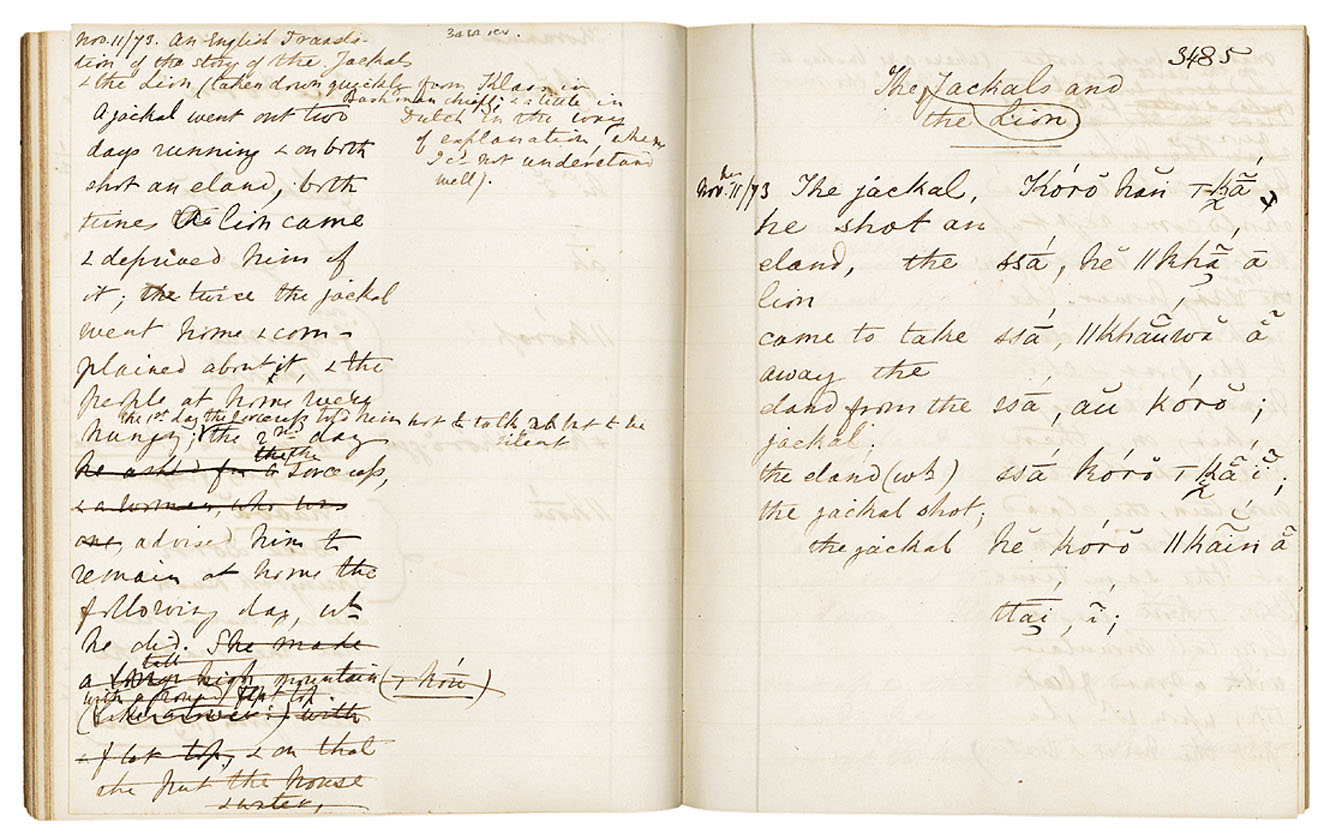 Nov. 11/73. An English Transla-
tion of the story of the Jackals
& the Lion (taken down quickly from Klaas in
Bushman chiefly; & a little in
Dutch in the way
of explanation, when
I cd not understand
well).
A jackal went out two
days running & on both
shot an eland, both
times the lion came
& deprived him of
it; the twice the jackal
went home & com-
plained about it, & the
people at home were
the 1st day the sorceress told him not to talk but to be
silent
hungry; the 2nd day
he asked for a the sorceress,
& a woman, who was
one, advised him to
remain at home the
following day, wh
he did. She made
a tall high mountain (⊤ kóú)
with a round flat top.
with
a flat top, & on that
she put the house
& water,
3485
The Jackals and
the Lion
Nov. 11/73 The jackal, Kórŏ hăn ⊤kā̃
he shot an
eland, the ssā́, hĕ ||khā̃ ā
lion
came to take ssā́, ||khā̃uwă ā̃
away the
eland from the ssā́, aŭ kórŏ;
jackal;
the eland (wh) ssā́ kórŏ ⊤kā̃ ĩ;
the jackal shot;
the jackal hĕ kórŏ ||kāĭn ā̃
ttāí, ĩ;